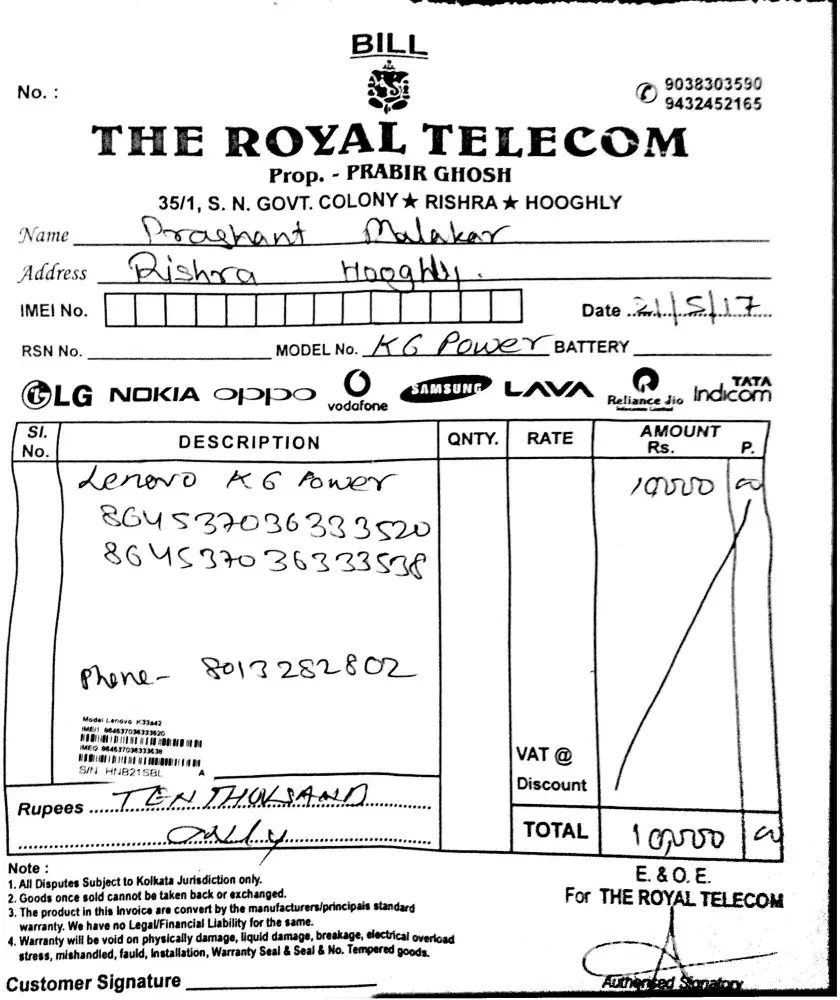 BILL
No. :
9038303590
9432452165
THE ROYAL TELECOM
Prop. - PRABIR GHOSH
35/1, S. N. GOVT. COLONY ★ RISHRA ★ HOOGHLY
Name Prashant Malakar
Address Rishra Hooghly.
IMEI No. Date 21/5/17
RSN No. MODEL No. K6 Power BATTERY
LG NOKIA oppo vodafone SAMSUNG LAVA Reliance Jio TATA Indicom
Sl. No. DESCRIPTION QNTY. RATE AMOUNT Rs. P.
Lenovo K6 Power 10000 00
864537036333520
864537036333538
Phone- 8013282802
Model Lenovo K33a42
IMEI1 864537036333520
IMEI2 864537036333538
S/N HNB21SBL A
VAT @
Discount
Rupees TEN THOUSAND
Only
TOTAL 10,000 00
Note :
1. All Disputes Subject to Kolkata Jurisdiction only.
2. Goods once sold cannot be taken back or exchanged.
3. The product in this Invoice are convert by the manufacturers/principais standard
warranty. We have no Legal/Financial Liability for the same.
4. Warranty will be void on physically damage, liquid damage, breakage, electrical overload
stress, mishandled, fauld, Installation, Warranty Seal & Seal & No. Tempered goods.
E. & O. E.
For THE ROYAL TELECOM
Authorised Signatory
Customer Signature